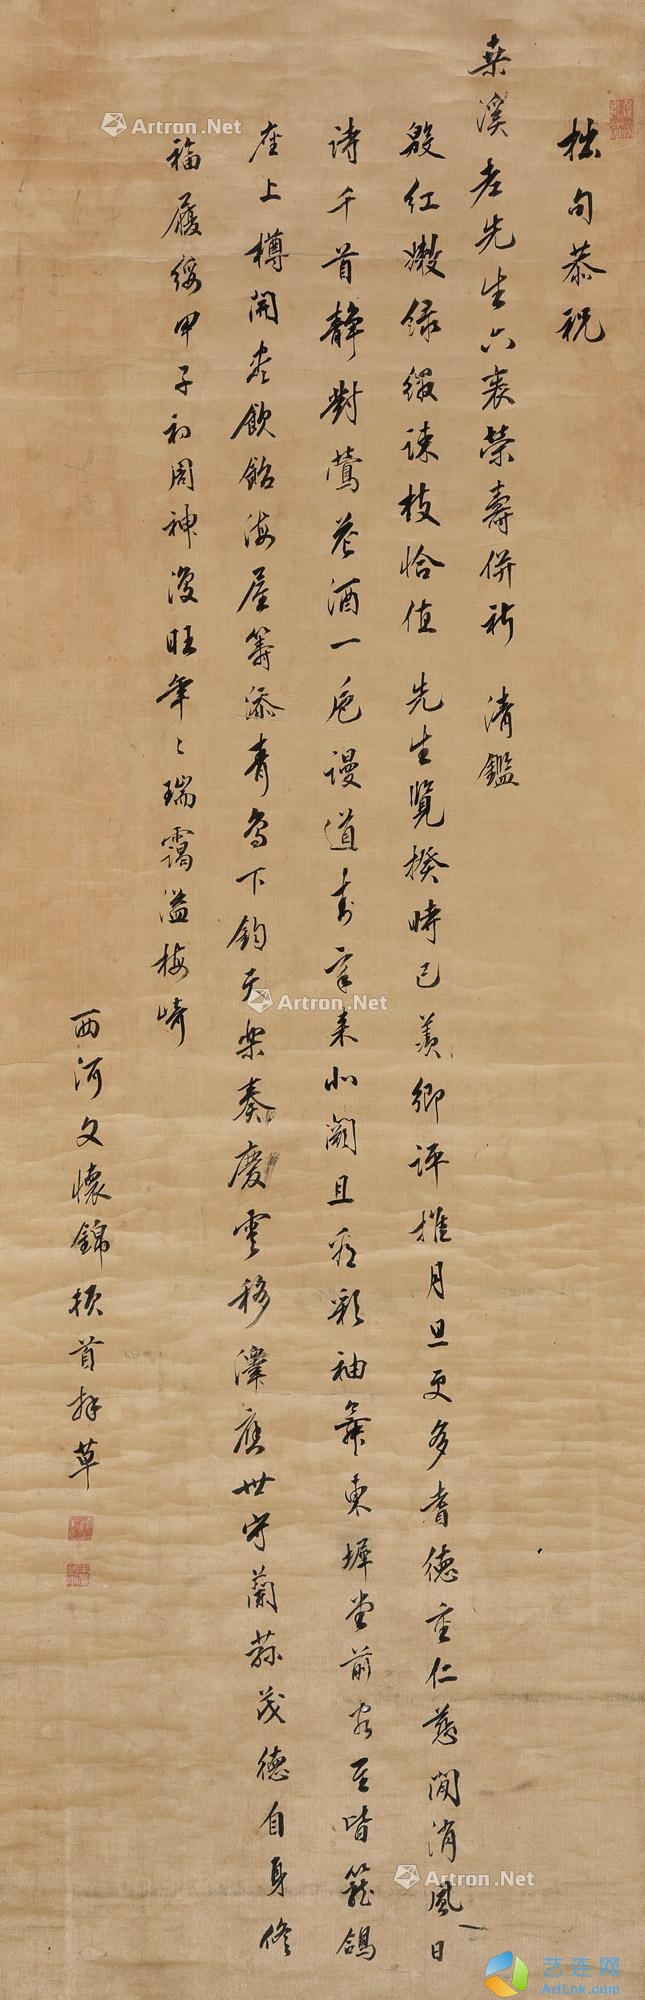 拙句恭祝
桑溪老先生六袠榮壽併祈 清鑑
殷紅嫩綠綴疎枝恰值 先生覽揆時已羨鄉評推月旦更多耆德重仁慈閒消風日
詩千首靜對鶯花酒一巵謾道來北闕且看彩袖舞東墀堂前客至皆籠鴿
座上樽開飲飴海屋籌添青鳥下鈞天樂奏慶雲移澤應世守蘭蓀茂德自身修
福履綏甲子初周神復旺年〻瑞靄溢梅崎
西河文懷錦頓首拜草
Artron.Net
Artron.Net
Artron.Net
Artron.Net
艺连网
ArtLnk.com